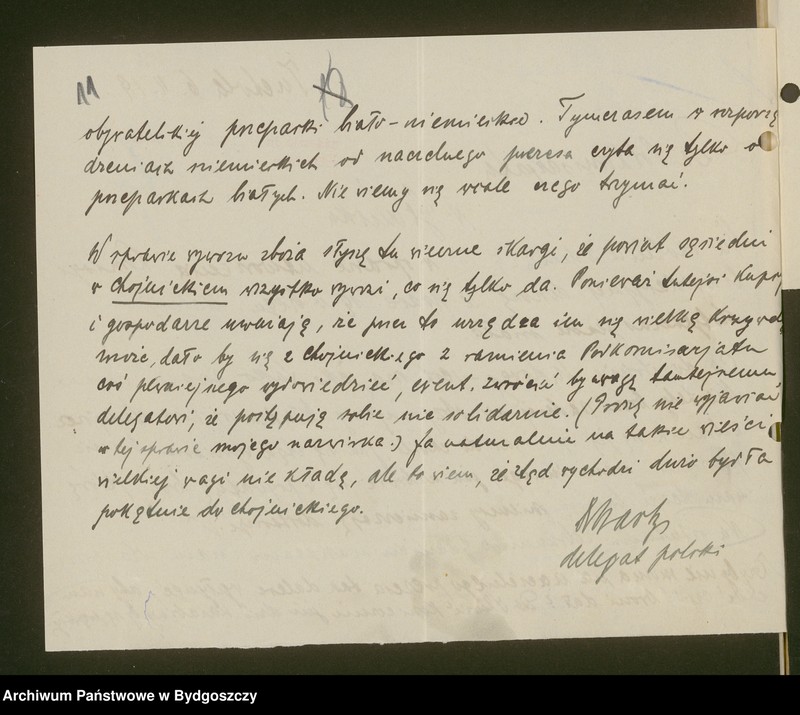 11 12
obywatelskiej przepaski biało-niemieckie. Tymczasem w rozporzą
dzeniach niemieckich od naczelnego prezesa czyta się tylko o
przepaskach białych. Nie wiemy się wcale czego trzymać.
W sprawie wywozu zboża słyszę tu wieczne skargi, że powiat sąsiedni
w chojnickiem wszystko wywozi, co się tylko da. Ponieważ tutejsi kupcy
i gospodarze uważają, że przez to urządza im się wielką krzywdę
może, dało by się z chojnickiego z ramienia Podkomisarjatu
coś pewniejnego wypowiedzieć, event. zwrócić by uwagę tamtejszemu
delegatowi, że postępują sobie nie solidarnie. (Proszę nie wyjawiać
w tej sprawie mojego nazwiska.) Ja naturalnie na takie wieści
wielkiej wagi nie kładę, ale to wiem, że stąd wychodzi dużo bydła
pokątnie do chojnickiego.
delegat polski
Archiwum Państwowe w Bydgoszczy